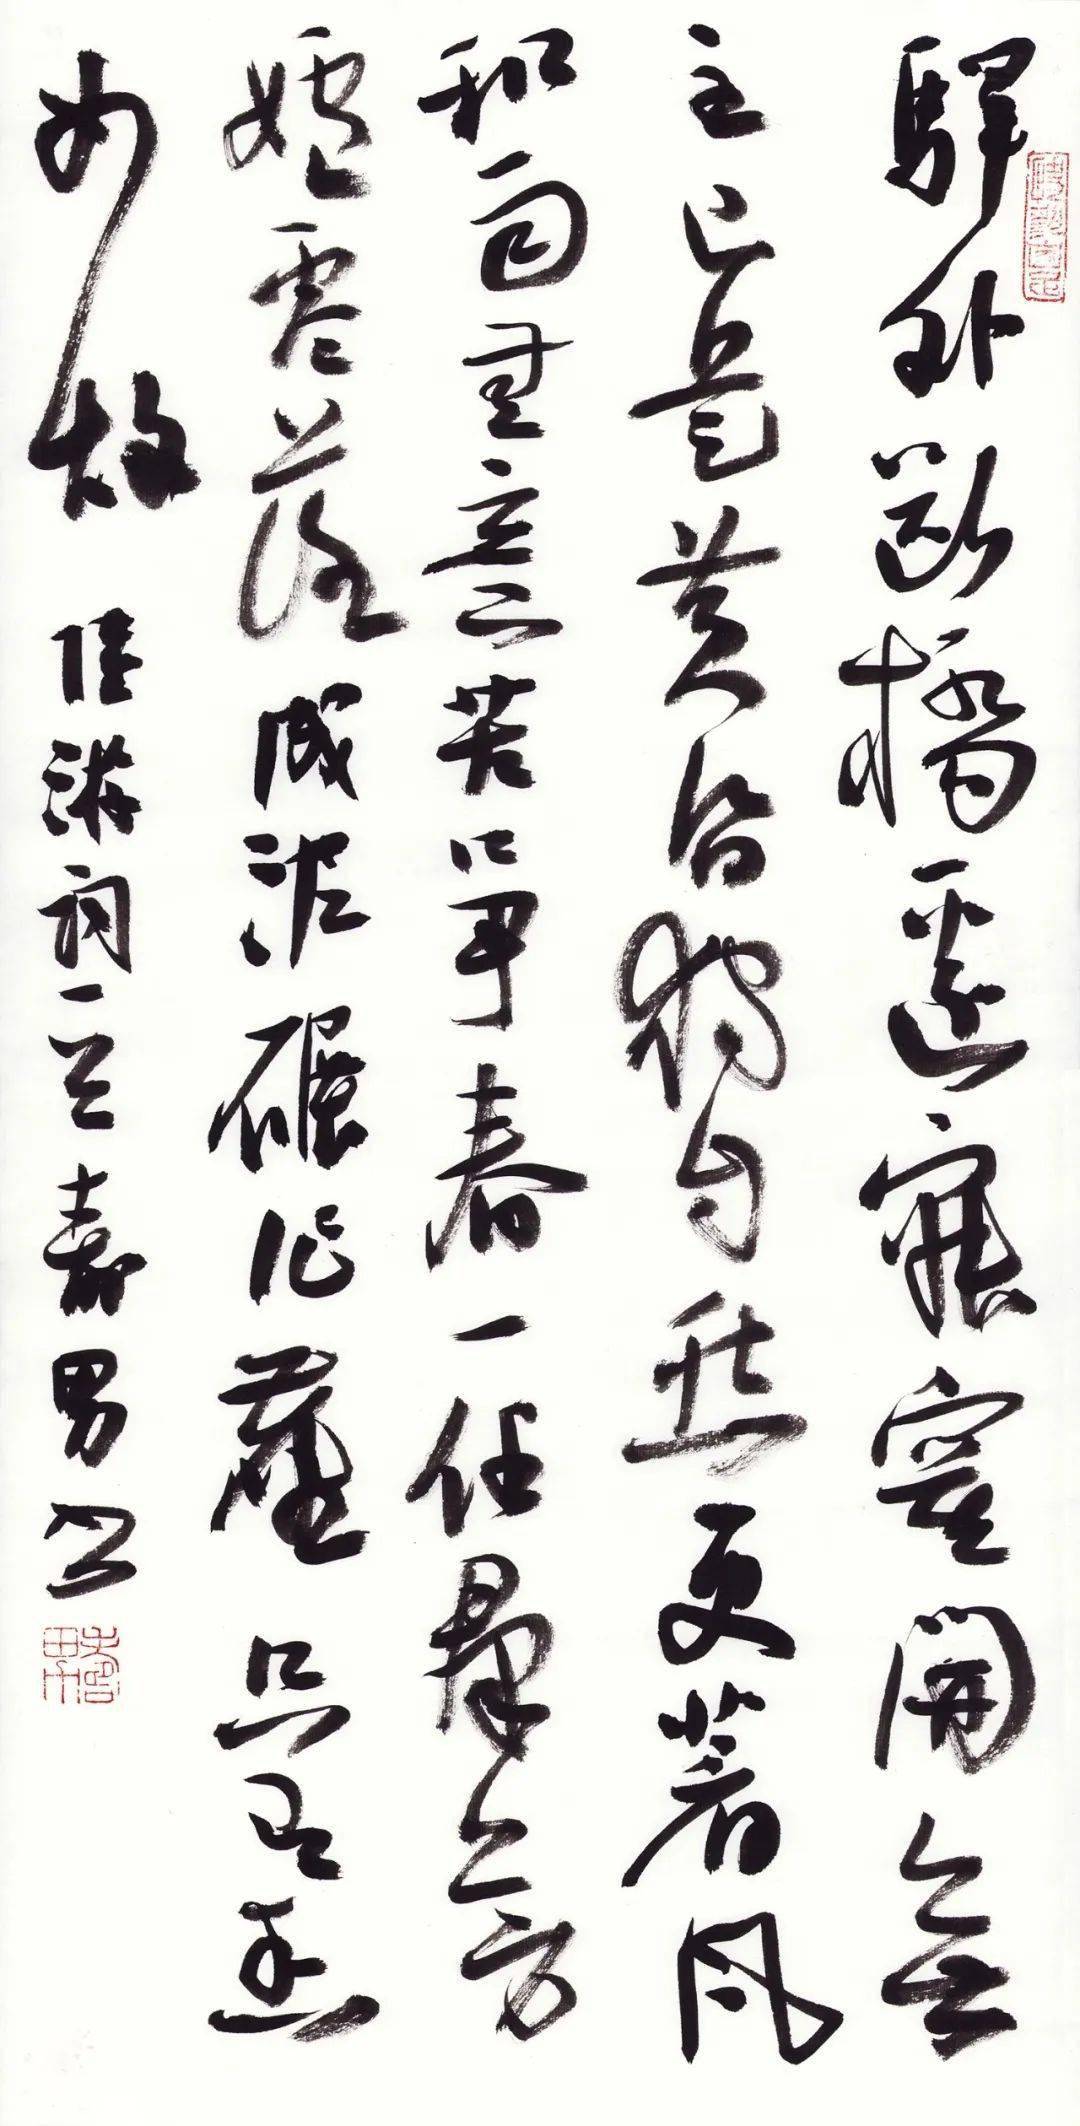 驛外斷橋邊寂寞開無
主已是黄昏獨自愁更著風
和雨無意苦争春一任群芳
妒零落成泥碾作塵只有香
如故 陸游詞一首壽男書